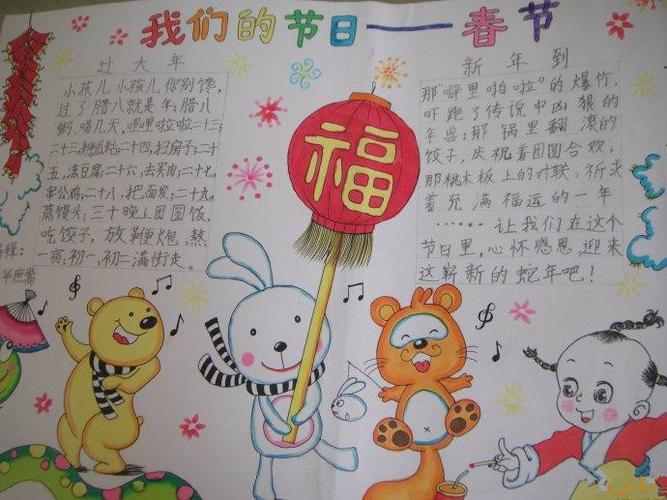 我们的节日——春节
过大年
小孩儿小孩儿你别馋,
过了腊八就是年;腊八
粥,喝几天,哩哩啦啦二十三;
二十三,糖瓜粘;二十四,扫房子;二十
五,冻豆腐;二十六,去买肉;二十七,
宰公鸡;二十八,把面发;二十九,
蒸馒头;三十晚上团圆饭,
吃饺子,放鞭炮,熬
一宿;初一、初二满街走。
辑:
福
新年到
那“噼里啪啦”的爆竹,
吓跑了传说中凶狠的
年兽;那锅里翻滚的
饺子,庆祝着团圆合欢,
那桃木板上的对联,祈求
着充满福运的一年
……让我们在这个
节日里,心怀感恩,迎来
这崭新的蛇年吧!